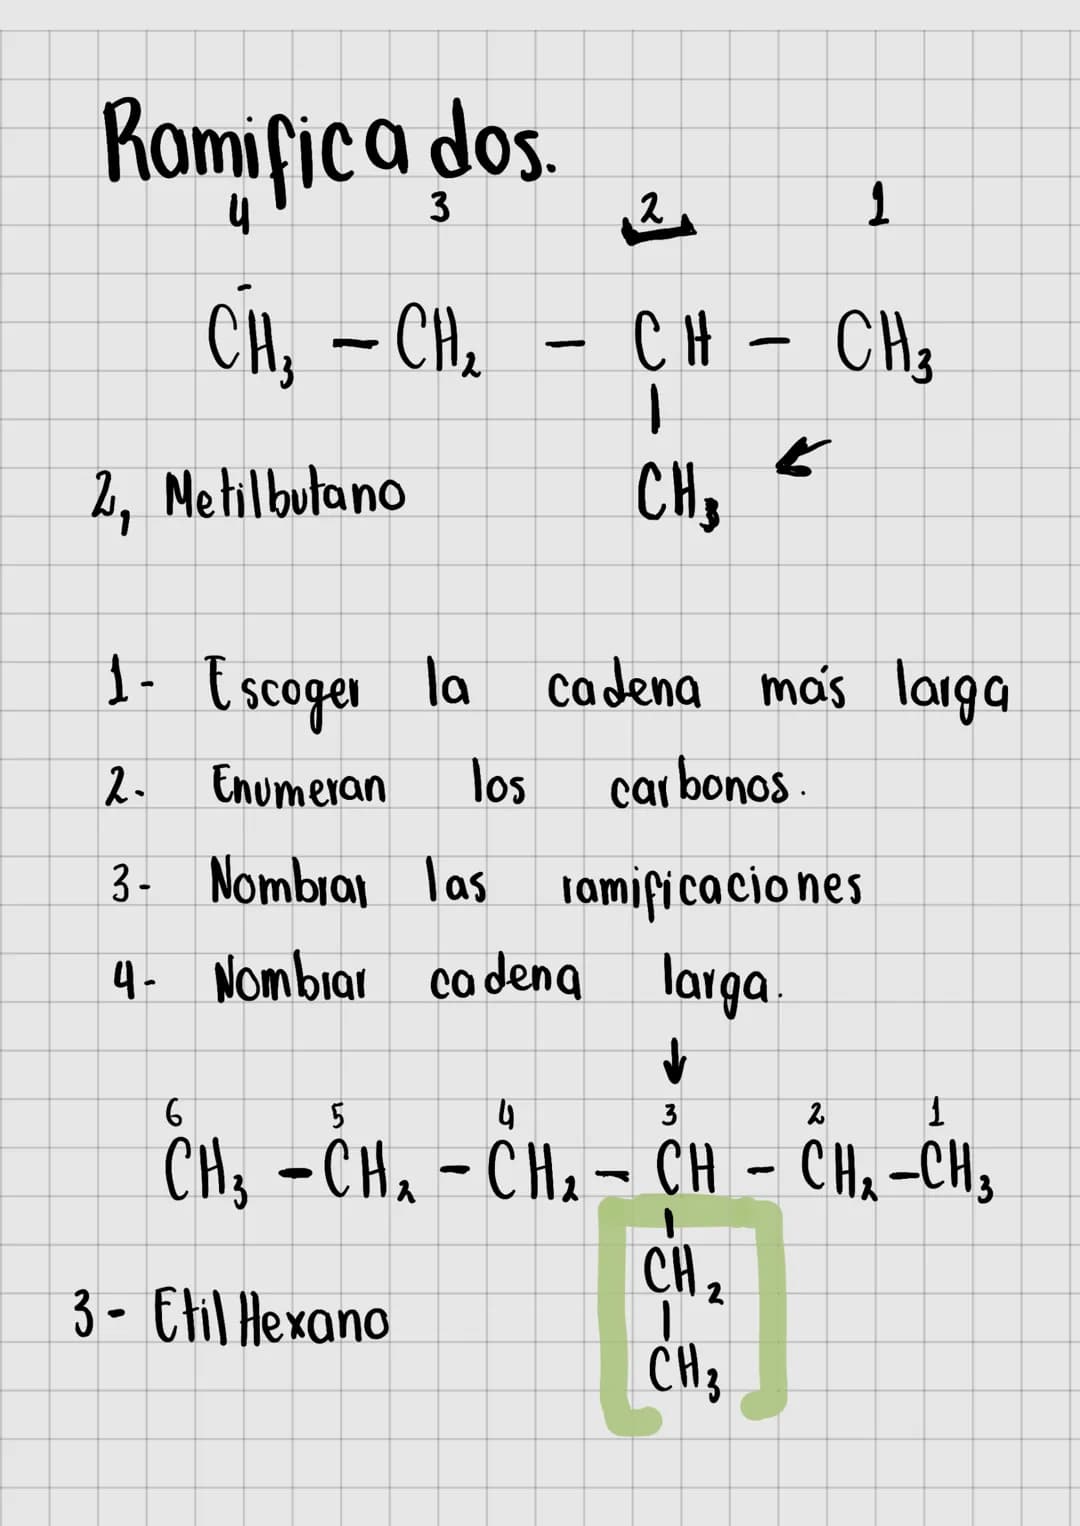 Ramificados.
4 3 2 1
CH₃ – CH₂ – CH – CH₃
|
CH₃
2, Metilbutano
1- Escoger la cadena más larga
2- Enumeran los carbonos.
3- Nombrar las ramificaciones
4- Nombrar cadena larga.
↓
6 5 4 3 2 1
CH₃ – CH₂ – CH₂ – CH – CH₂ – CH₃
|
CH₂
|
CH₃
3- Etil Hexano